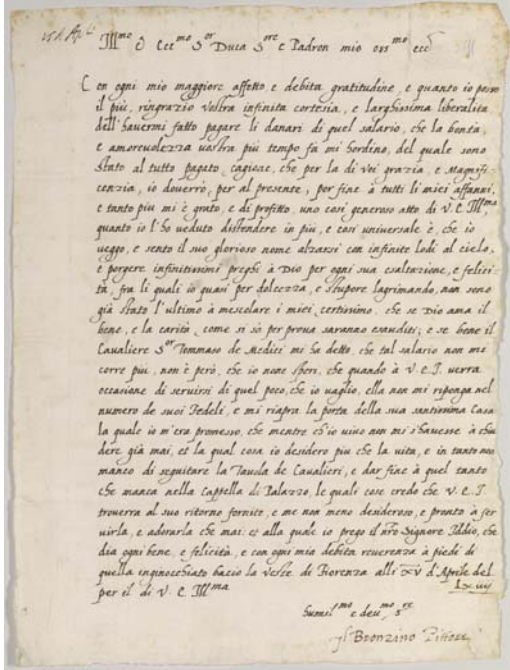 15 Ap.le
Ill.mo & Ecc.mo S.or Duca S.ore e Padron mio oss.mo ecc.
Con ogni mio maggiore affetto, e debita gratitudine, e quanto io posso
il più, ringrazio vostra infinita cortesia, e larghissima liberalita
dell'havermi fatto pagare li danari di quel salario, che la bontà,
e amorevolezza vostra più tempo fà mi hordino, del quale sono
stato al tutto pagato, cagione, che per la di voi grazia, e Magnifi-
cenzia, io doverrò, per al presente, por fine à tutti li miei affanni,
e tanto più mi è grato, e di profitto, uno così generoso atto di V. E. Ill.ma,
quanto io l'ho veduto distendere in più, e così universale è, che io
veggo, e sento il suo glorioso nome alzarsi con infinite lodi al cielo,
e porgere infinitissimi preghi à Dio per ogni sua esaltazione, e felici-
tà, fra li quali io quasi per dolcezza, e stupore lagrimando, non sono
già stato l'ultimo à mescolare i miei, certissimo, che se Dio ama il
bene, e la carità, come si sà per prova saranno esauditi; e se bene il
Cavaliere S.or Tommaso de Medici mi ha detto, che tal salario non mi
corre più, non è però, che io none speri, che quando à V. E. I. verra
occasione di servirsi di quel poco, che io vaglio, ella non mi riponga nel
numero de suoi Fedeli, e mi riapra la porta della sua santissima Casa
la quale io m'era promesso, che mentre ch'io vivo non mi s'havesse à chiu
dere già mai, et la qual cosa io desidero più che la vita, e in tanto non
manco di seguitare la Tavola de Cavalieri, e dar fine à quel tanto
che manca nella Cappella di Palazzo, le quali cose credo che V. E. I.
troverra al suo ritorno fornite, e me non meno desideroso, e pronto à ser
virla, e adorarla che mai: et alla quale io prego il nrõ Signore Iddio, che
dia ogni bene, e felicità, e con ogni mia debita reverenza à piedi di
quella inginocchiato bacio la veste di Fiorenza alli XV d'Aprile del
LXiiij
per il di V. E. Ill.ma
humil.mo e devo.mo s.re
Il Bronzino Pittore